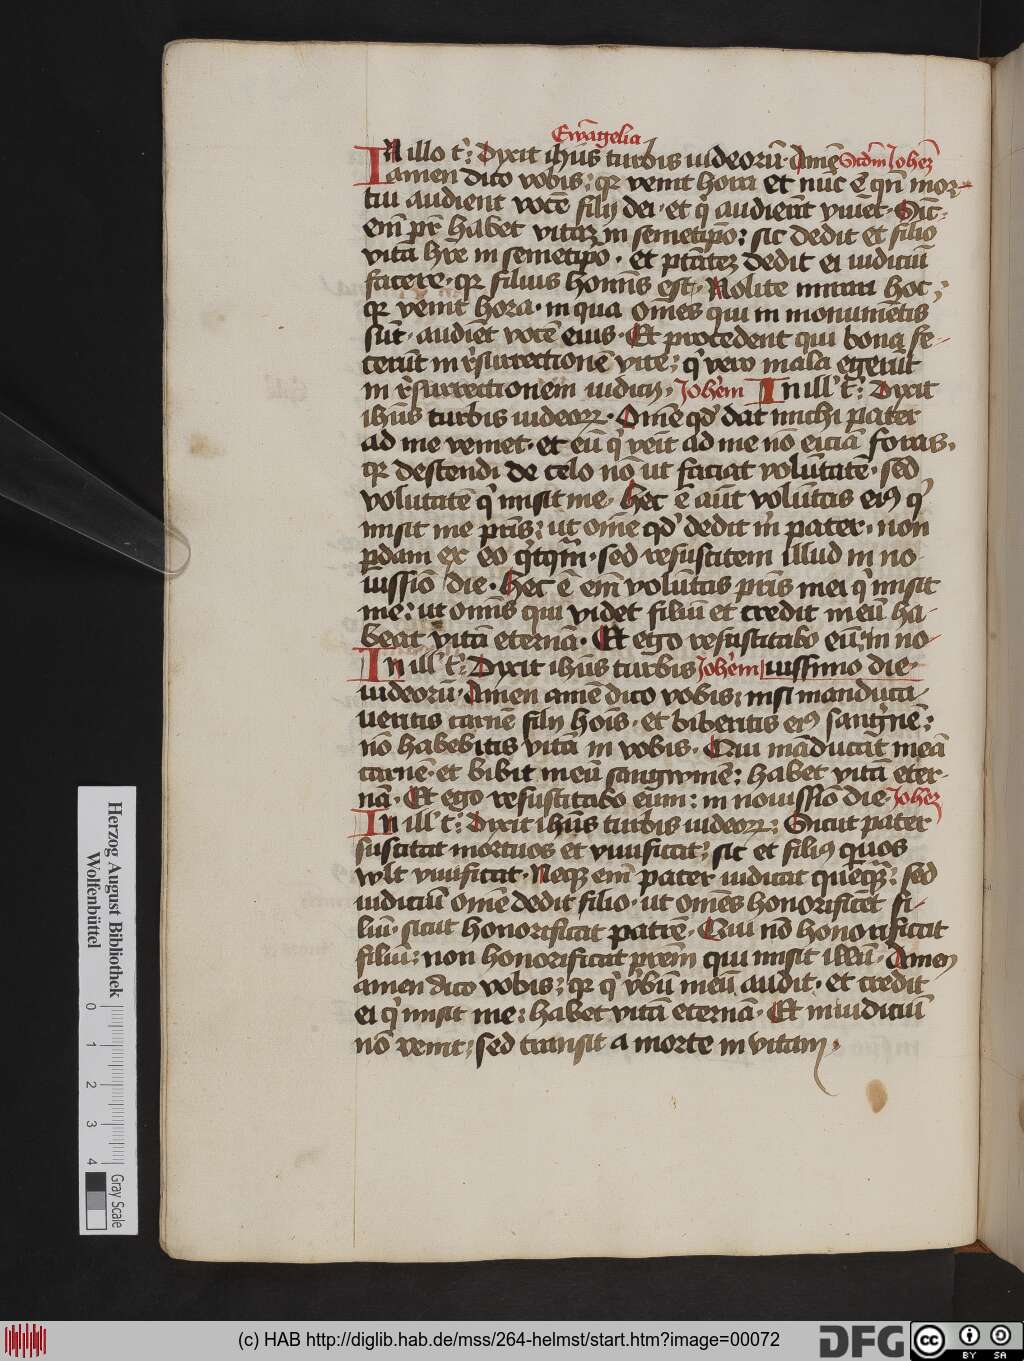 Ewãgelia
IN illo t': Dyxit ihũs turbis iudeorũ· Amẽ Scdm Johez
amen dico vobis: qr venit hora et nũc ẽ qñ mor-
tui audient vocẽ filij dei· et q' audierĩt viuẽt· Sic̃
em̃ pr̃ habet vitaz in semetip̃o: sic dedit et filio
vitã hr̃e in semetip̃o· et ptãtez dedit ei iudiciũ
facere· qr filius homĩs est· Nolite mirari hoc;
qr venit hora· in qua om̃es qui in monumẽtis
sũt· audiẽt vocẽ eius· Et procedent qui bona fe-
cerũt in r'surrectionẽ vite; q' vero mala egerũt
in r'surrectionem iudicij· Joh'em In ill' t': Dyxit
ihũs turbis iudeorz· Om̃e qd' dat michi pater
ad me veniet· et eũ q' veĩt ad me nõ eiciã foras·
qr descendi de celo nõ ut faciat volũtatẽ· sed
volutatẽ q' misit me· hec ẽ aũt volũtas ei9 q'
misit me pr̃is: ut om̃e qd' dedit m̃ pater· non
pdam ex eo q'tq̃m· sed resuscitem illud in no
uissiõ die· Hec ẽ em̃ volũtas pr̃is mei q' misit
me: ut om̃is qui videt filiũ et credit meũ ha-
beat vitã eternã· Et ego resuscitabo eũ in no-
In ill' t': Dyxit ihũs turbis Joh'em uissimo die·
iudeorũ· Amen amẽ dico vobis: nisi manduca-
ueritis carnẽ filij hoĩs· et biberitis ei9 sang'nẽ:
nõ habebitis vitã in vobis· Qui mãducat meã
carnẽ· et bibit meũ sangwinẽ: habet vitã eter-
nã· Et ego resuscitabo eum: in nouissiõ die· Johez
In ill' t': Dyxit ihũs turbis iudeorz: Sicut pater
suscitat mortuos et viuificat; sic et fili9 quos
wlt viuificat· Neqz em̃ pater iudicat quẽq̃z: sed
iudiciũ om̃e dedit filio· ut om̃es honorificẽt fi-
liũ· sicut honorificat patrẽ· Qui nõ honorificat
filiũ: non honorificat pr̃em qui misit illũ· Amen
amen dico vobis: qr q' v'bũ meũ audit· et credit
ei q' misit me: habet vitã eternã· Et in iudiciũ
nõ venit: sed transit a morte in vitam·
Herzog August Bibliothek
Wolfenbüttel
0 1 2 3 4
Gray Scale
(c) HAB http://diglib.hab.de/mss/264-helmst/start.htm?image=00072
DFG
cc BY SA